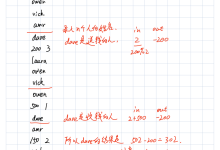 owen
vick
amr
dave
200 3
laura
owen
vick
owen
500 1
dave
amr
150 2
最大n个人的姓名.
dave是送钱的人.
in out
2 -200
200%2
dave是收钱的人
in out
2+500 -200
所以dave的结果是 502-200=302.